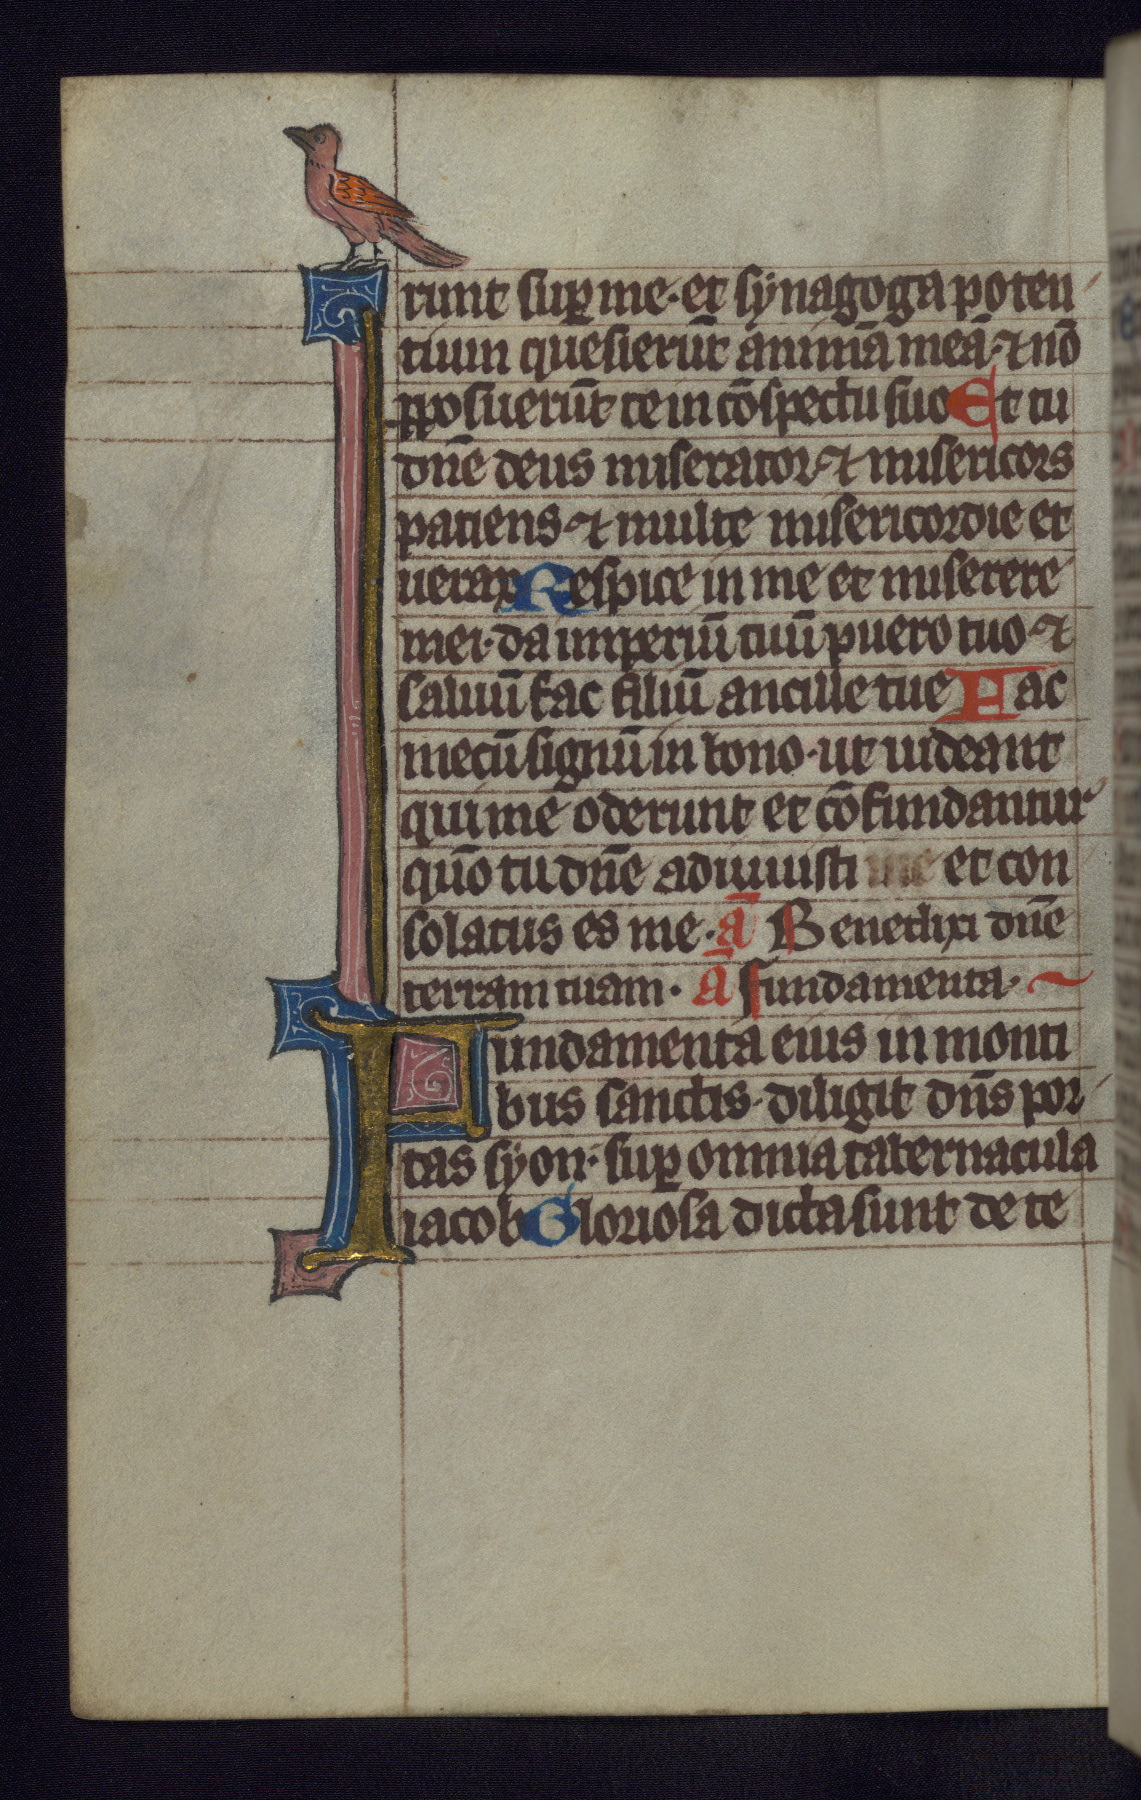 runt sup me· et synagoga poten
tium quesierūt animā meā· ⁊ nō
pposuerūt te in cōspectu suo Et tu
dn̄e deus miserator ⁊ misericors
patiens ⁊ multe misericordie et
uerax Respice in me et miserere
mei· da imperiū tuū puero tuo ⁊
saluū fac filiū ancille tue Fac
mecū signū in bono· ut uideant
qui me oderunt et cōfundantur
qūo tu dn̄e adiuuisti me et con
solatus es me· ā Benedixi dn̄e
terram tuam· ā fundamenta·
Fundamenta eius in monti
bus sanctis· diligit dn̄s por
tas syon· sup omnia tabernacula
iacob Gloriosa dicta sunt de te